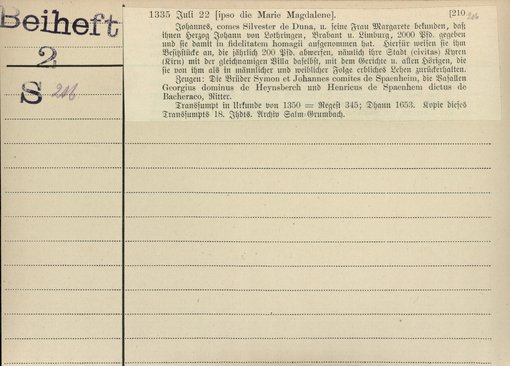 Beiheft
2
S 206
1335 Juli 22 [ipso die Marie Magdalene]. [210 206
Johannes, comes Silvester de Duna, u. seine Frau Margarete bekunden, daß
ihnen Herzog Johann von Lothringen, Brabant u. Limburg, 2000 Pfd. gegeben
und sie damit in fidelitatem homagii aufgenommen hat. Hierfür weisen sie ihm
Besitzstücke an, die jährlich 200 Pfd. abwerfen, nämlich ihre Stadt (civitas) Kyren
(Kirn) mit der gleichnamigen Villa daselbst, mit dem Gerichte u. allen Hörigen, die
sie von ihm als in männlicher und weiblicher Folge erbliches Lehen zurückerhalten.
Zeugen: Die Brüder Symon et Johannes comites de Spaenheim, die Vasallen
Georgius dominus de Heynsberch und Henricus de Spaenhem dictus de
Bacheraco, Ritter.
Transsumpt in Urkunde von 1350 = Regest 345; Dhaun 1653. Kopie dieses
Transsumpts 18. Jhdts. Archiv Salm-Grumbach.